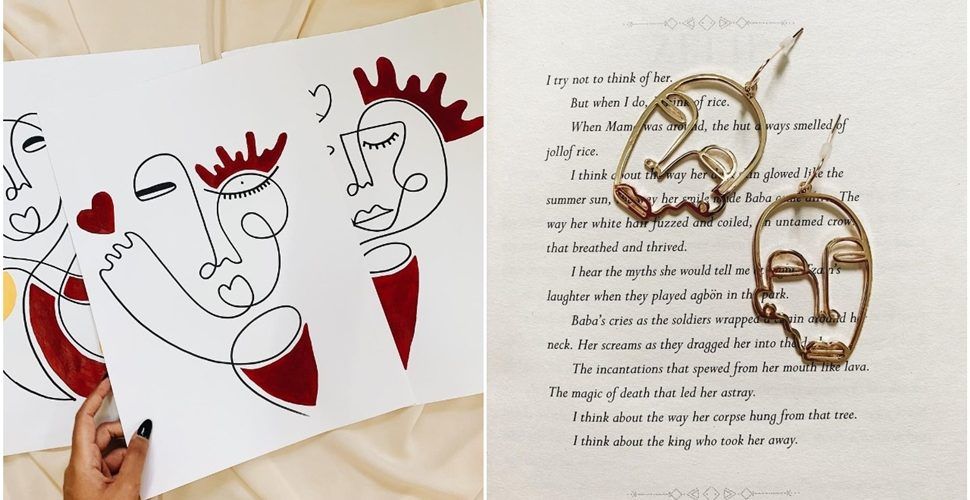 I try not to think of her.
But when I do, I think of rice.
When Mama was around, the hut always smelled of
jollof rice.
I think about the way her skin glowed like the
summer sun, the way her smile made Baba come alive. The
way her white hair fuzzed and coiled, an untamed crown
that breathed and thrived.
I hear the myths she would tell me at night. Tzain's
laughter when they played agbön in the park.
Baba's cries as the soldiers wrapped a chain around her
neck. Her screams as they dragged her into the dark.
The incantations that spewed from her mouth like lava.
The magic of death that led her astray.
I think about the way her corpse hung from that tree.
I think about the king who took her away.